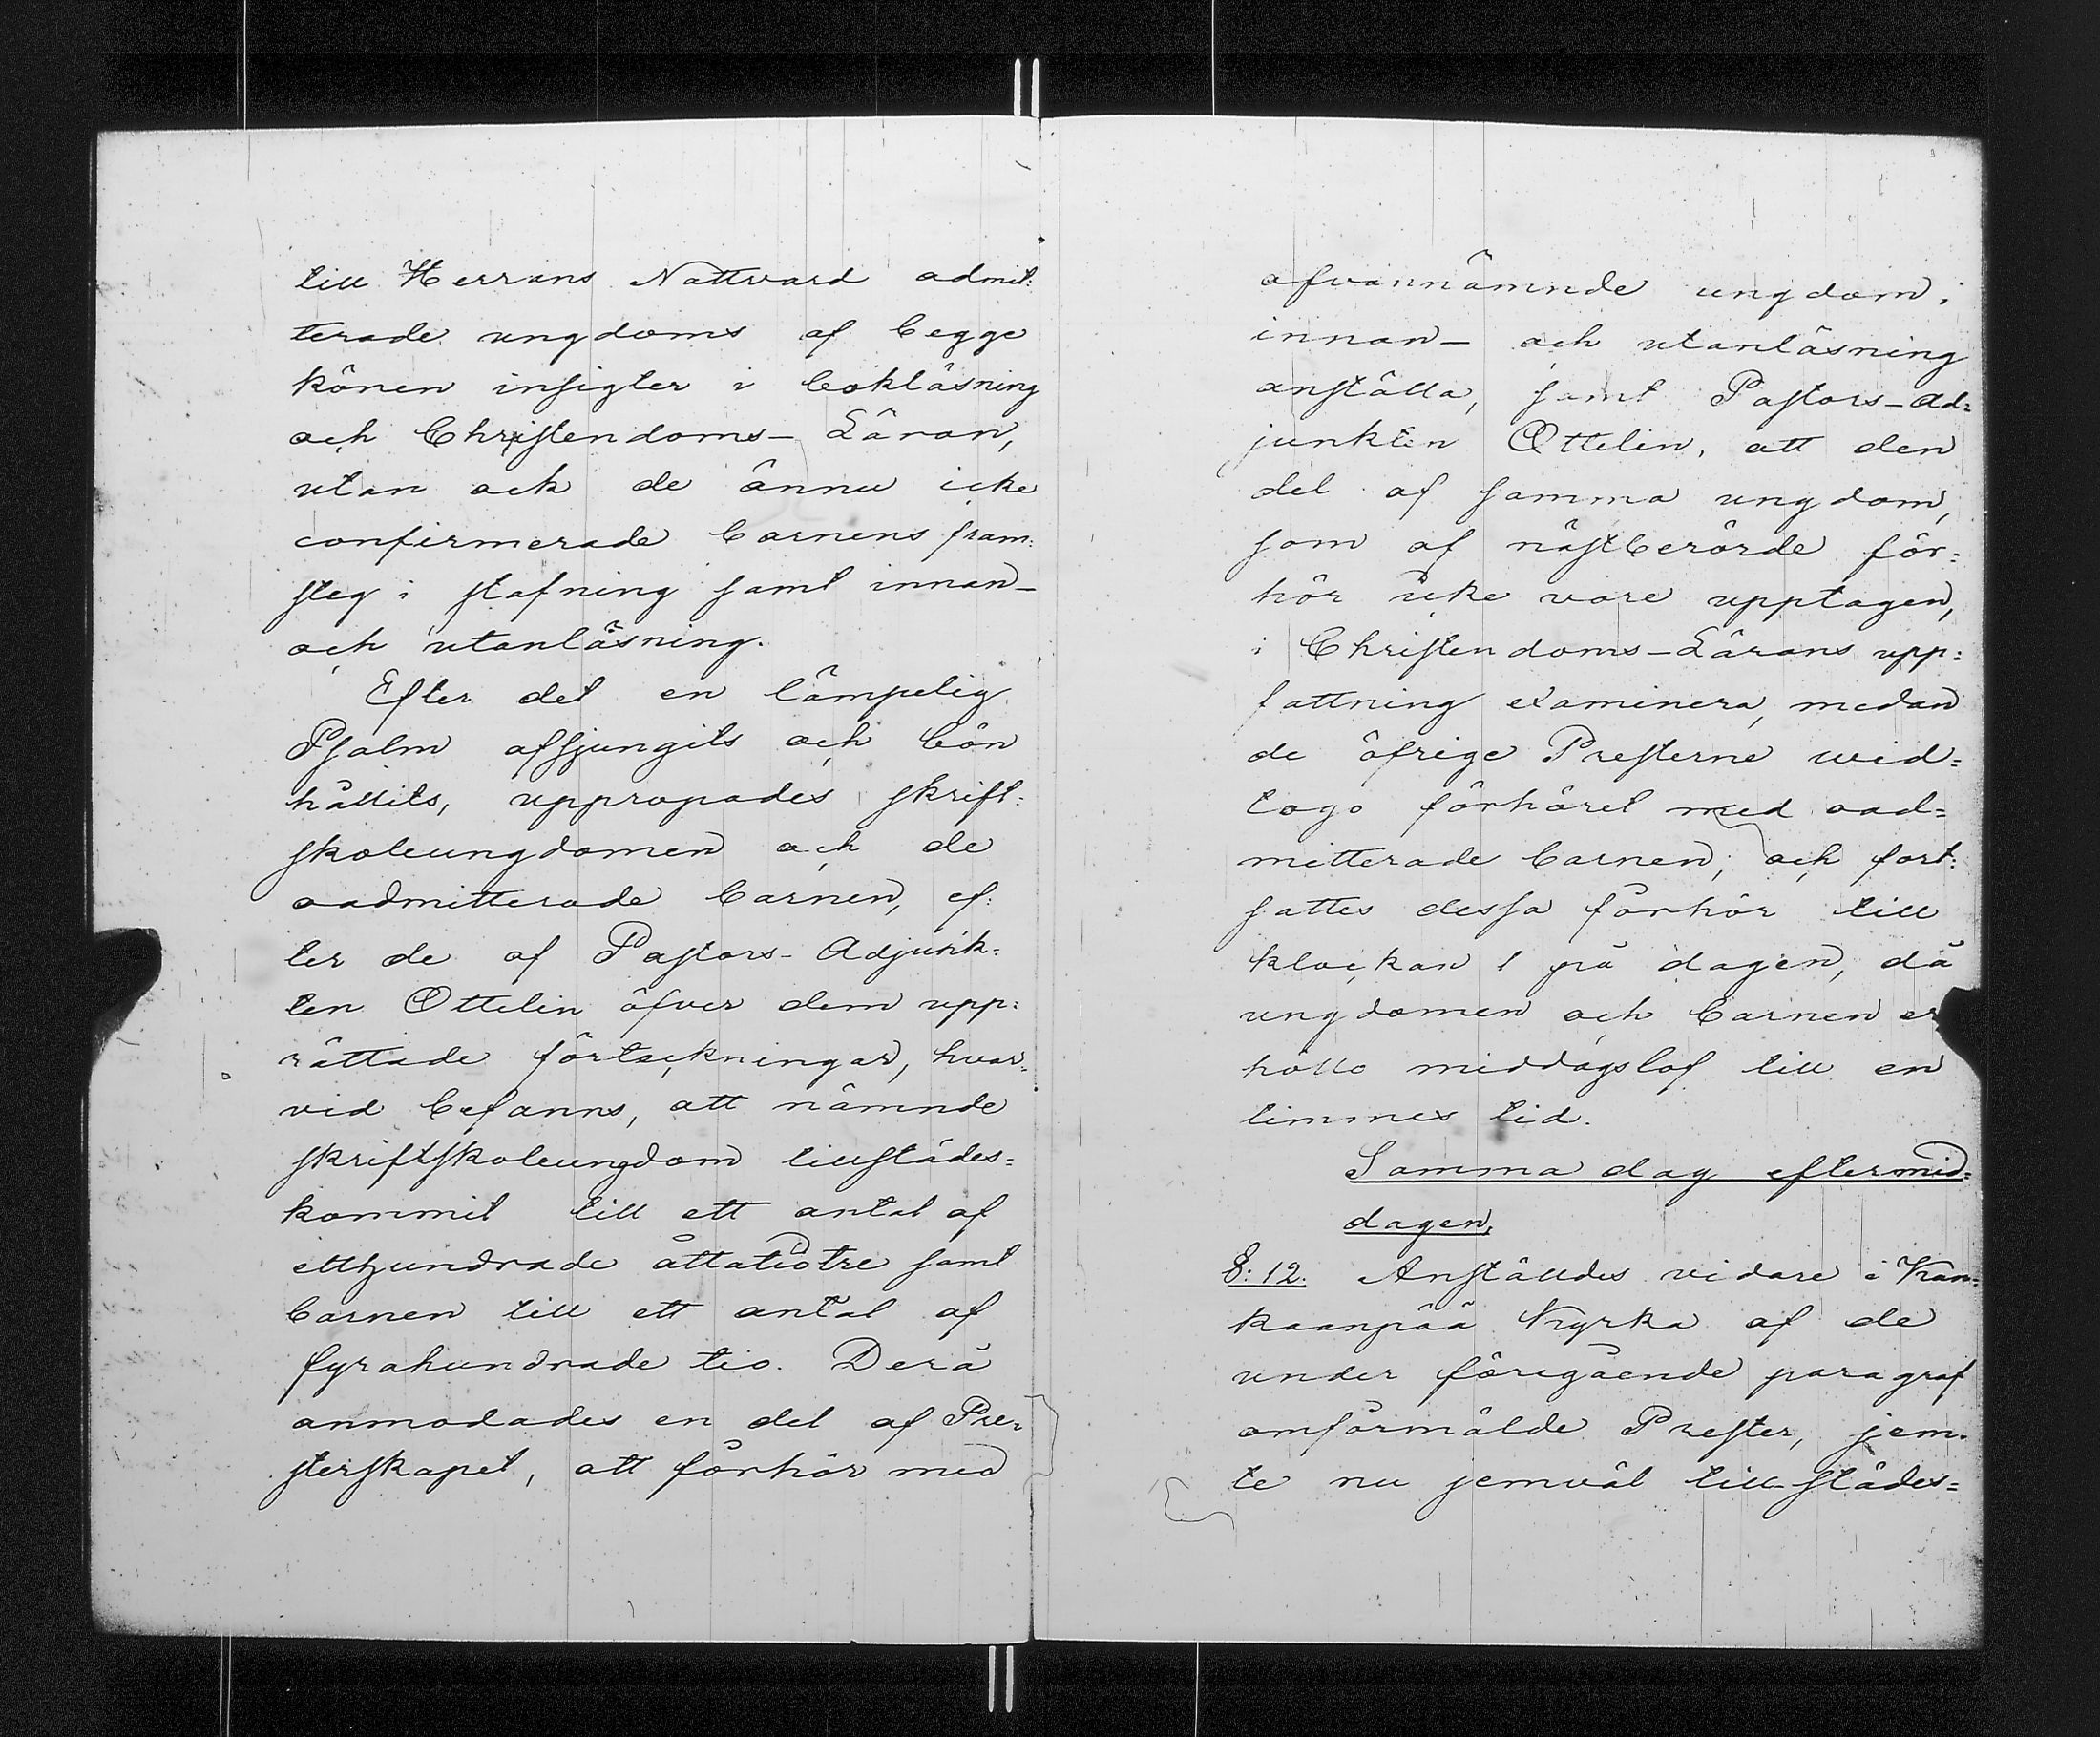 till Herrans Nattvard admit:
terade ungdoms af begge
könen insigter i bokläsning
och Christendoms-Läran,
utan ock de ännu icke
confirmerade barnens fram:
steg i stafning samt innan-
och utanläsning.
Efter det en lämpelig
Psalm afsjungits och bön
hållits, uppropades skrift:
skoleungdomen och de
oadmitterade barnen, ef:
ter de af Pastors-Adjunk:
ten Ottelin öfver dem upp:
rättade förteckningar, hvar:
vid befanns, att nämnde
skriftskoleungdom tillstädes:
kommit till ett antal af
etthundrade åttatiotre samt
barnen till ett antal af
fyrahundrade tio. Derå
anmodades en del af Pre:
sterskapet, att förhör med
ofvannämnde ungdom i
innan- och utanläsning
anställa, samt Pastors-Ad:
junkten Ottelin, att den
del af samma ungdom,
som af nästberörde för:
hör icke vore upptagen,
i Christendoms-Lärans upp:
fattning examinera, medan
de öfrige Presterne vid:
togo förhöret med oad:
mitterade barnen; och fort:
sattes dessa förhör till
klockan 1 på dagen, då
ungdomen och barnen er
höllo middagslof till en
timmes tid.
Samma dag eftermid:
dagen,
§: 12. Anställdes vidare i Kan:
kaanpää Kyrka af de
under föregående paragraf
omförmälde Prester, jem:
te nu jemväl till städes: